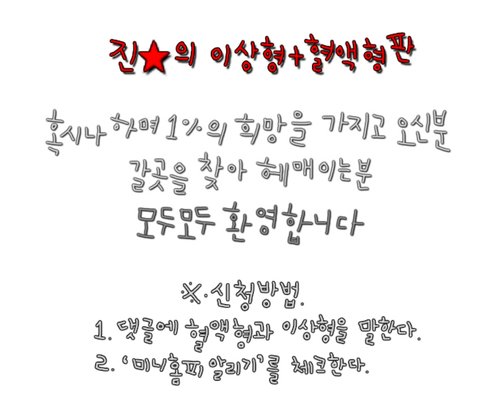 진★의 이상형+혈액형판
혹시나 하며 1%의 희망을 가지고 오신분
갈곳을 찾아 헤매이는분
모두모두 환영합니다
※.신청방법.
1. 댓글에 혈액형과 이상형을 말한다.
2. '미니홈피 알리기'를 체크한다.